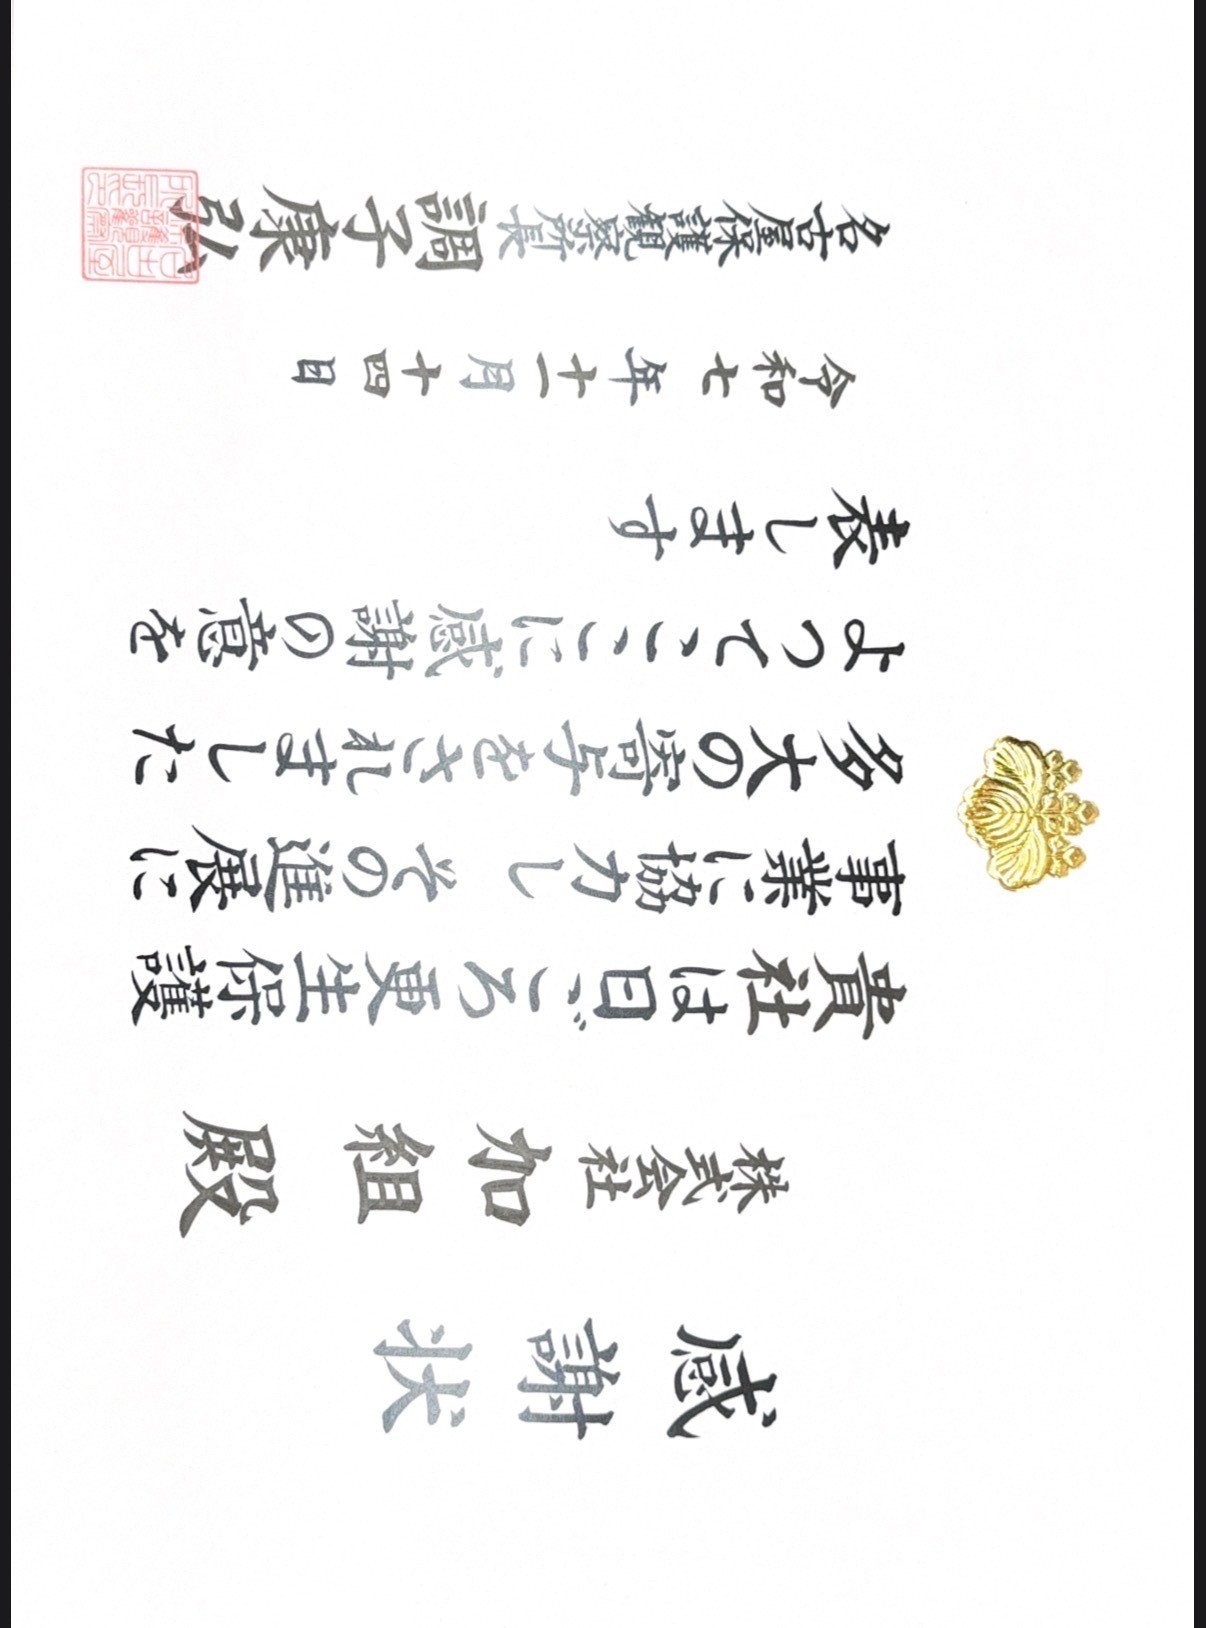 感謝状
株式会社 加組 殿
貴社は日ごろ更生保護
事業に協力し その進展に
多大の寄与をされました
よってここに感謝の意を
表します
令和七年十一月十四日
名古屋保護観察所長 調子康弘